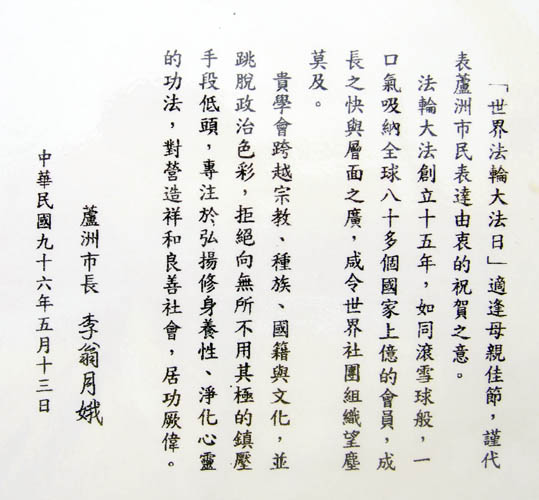 「世界法輪大法日」適逢母親佳節，謹代
表蘆洲市民表達由衷的祝賀之意。
法輪大法創立十五年，如同滾雪球般，一
口氣吸納全球八十多個國家上億的會員，成
長之快與層面之廣，咸令世界社團組織望塵
莫及。
貴學會跨越宗教、種族、國籍與文化，並
跳脫政治色彩，拒絕向無所不用其極的鎮壓
手段低頭，專注於弘揚修身養性、淨化心靈
的功法，對營造祥和良善社會，居功厥偉。
蘆洲市長 李翁月娥
中華民國九十六年五月十三日